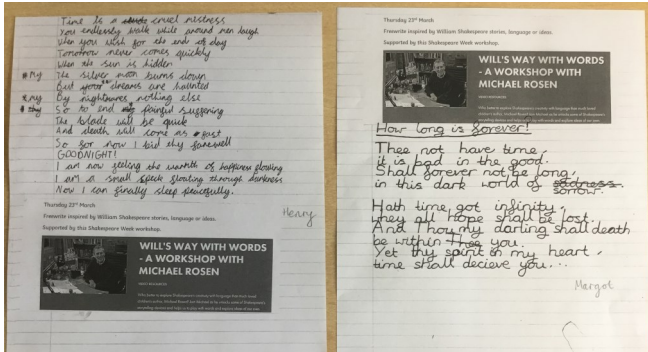 Time is a cruel mistress
You endlessly walk while around men laugh
When you wish for the end of day
Tomorrow never comes quickly
When the sun is hidden
*My The silver moon burns down
But your dreams are haunted
*my By nightmares nothing else
So to end painful suffering
The blade will be quick
And death will come as fast
So for now I bid thy farewell
GOODNIGHT!
I am now feeling the warmth of happiness flowing
I am a small speck floating through darkness
Now I can finally sleep peacefully.
Thursday 23rd March
Freewrite inspired by William Shakespeare stories, language or ideas.
Supported by this Shakespeare Week workshop.
Henry
WILL'S WAY WITH WORDS
- A WORKSHOP WITH
MICHAEL ROSEN
Thursday 23rd March
Freewrite inspired by William Shakespeare stories, language or ideas.
Supported by this Shakespeare Week workshop.
WILL'S WAY WITH WORDS
- A WORKSHOP WITH
MICHAEL ROSEN
How long is forever!
Thee not have time,
it is bad in the good.
Shall forever not be long,
in this dark world of sadness
sorrow.
Hath time, got infinity,
they all hope shall be lost.
And Thou my darling shall death
be within Thee you.
Yet thy spirit in my heart,
time shall decieve you...
Margot